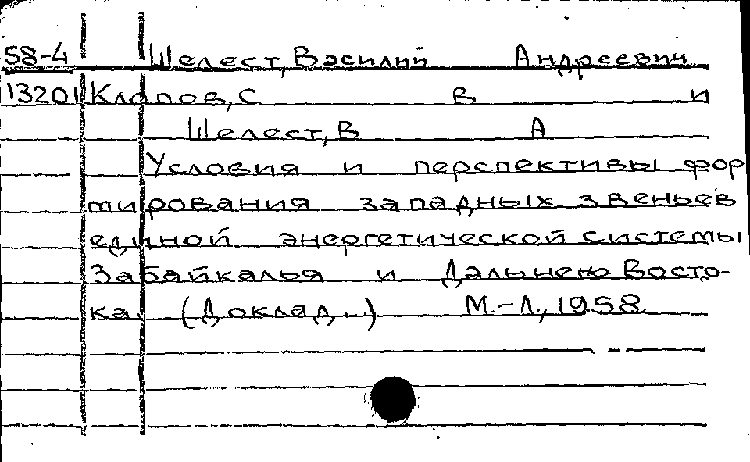 58-4 Шелест, Василий Андреевич
13201 Клопов, С В и
Шелест, В А
Условия и перспективы фор
мирования западных звеньев
единой энергетической системы
Забайкалья и Дальнего Восто-
ка (Доклад..) М.-Л., 1958